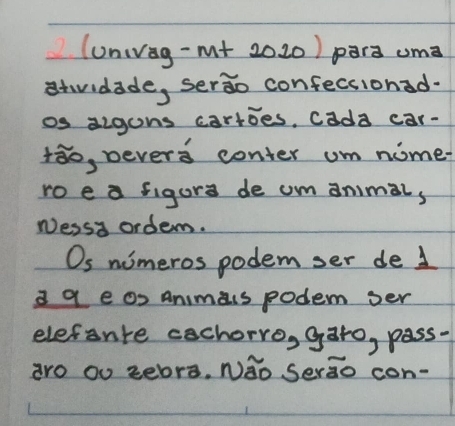 2. (Univag - Mt 2020) para uma
atividade, serão confeccionad-
os alguns cartões. Cada car-
tão, deverá conter um núme-
ro e a figura de um animal,
Nessa ordem.
Os números podem ser de 1
a 9 e os Animais podem ser
elefante cachorro, gato, pass-
aro ou zebra. Não Serão con-